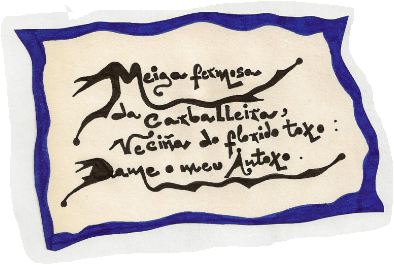 Meiga fermosa
da carballeira,
Veciña do florido toxo:
Dame o meu Antoxo.